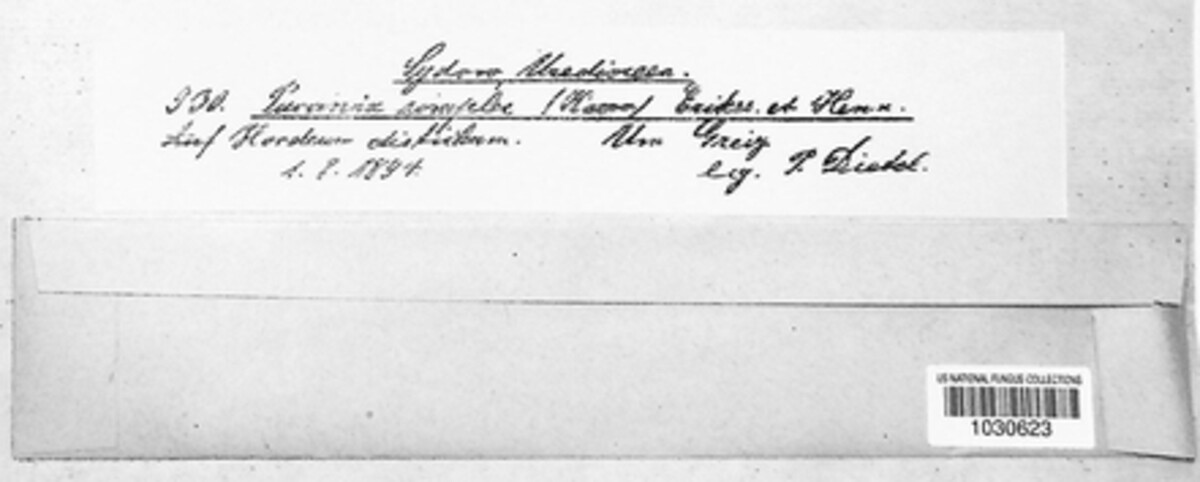 Sydow Uredineen.
930. Puccinia simplex (Koern) Erikss. et Henn.
Auf Hordeum distichum. Um Greiz
1. 8. 1894. leg. P. Dietel.
US NATIONAL FUNGUS COLLECTIONS
1030623